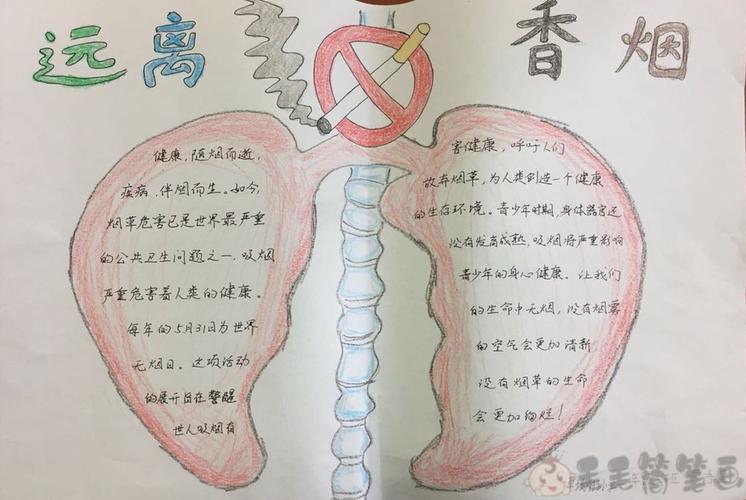 远离 香烟
健康，随烟而逝，
疾病，伴烟而生。如今，
烟草危害已是世界最严重
的公共卫生问题之一，吸烟
严重危害着人类的健康。
每年的5月31日为世界
无烟日。这项活动
的展开旨在警醒
世人吸烟有
害健康，呼吁人们
放弃烟草，为人类创造一个健康
的生存环境。青少年时期，身体器官还
没有发育成熟，吸烟将严重影响
青少年的身心健康。让我们
的生命中无烟，没有烟雾
的空气会更加清新，
没有烟草的生命
会更加绚烂！
毛毛简笔画